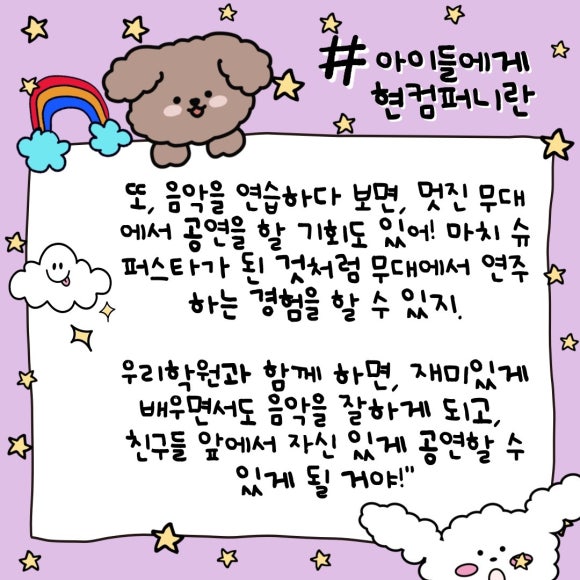 # 아이들에게
현컴퍼니란
또, 음악을 연습하다 보면, 멋진 무대
에서 공연을 할 기회도 있어! 마치 슈
퍼스타가 된 것처럼 무대에서 연주
하는 경험을 할 수 있지.
우리학원과 함께 하면, 재미있게
배우면서도 음악을 잘하게 되고,
친구들 앞에서 자신 있게 공연할 수
있게 될 거야!"